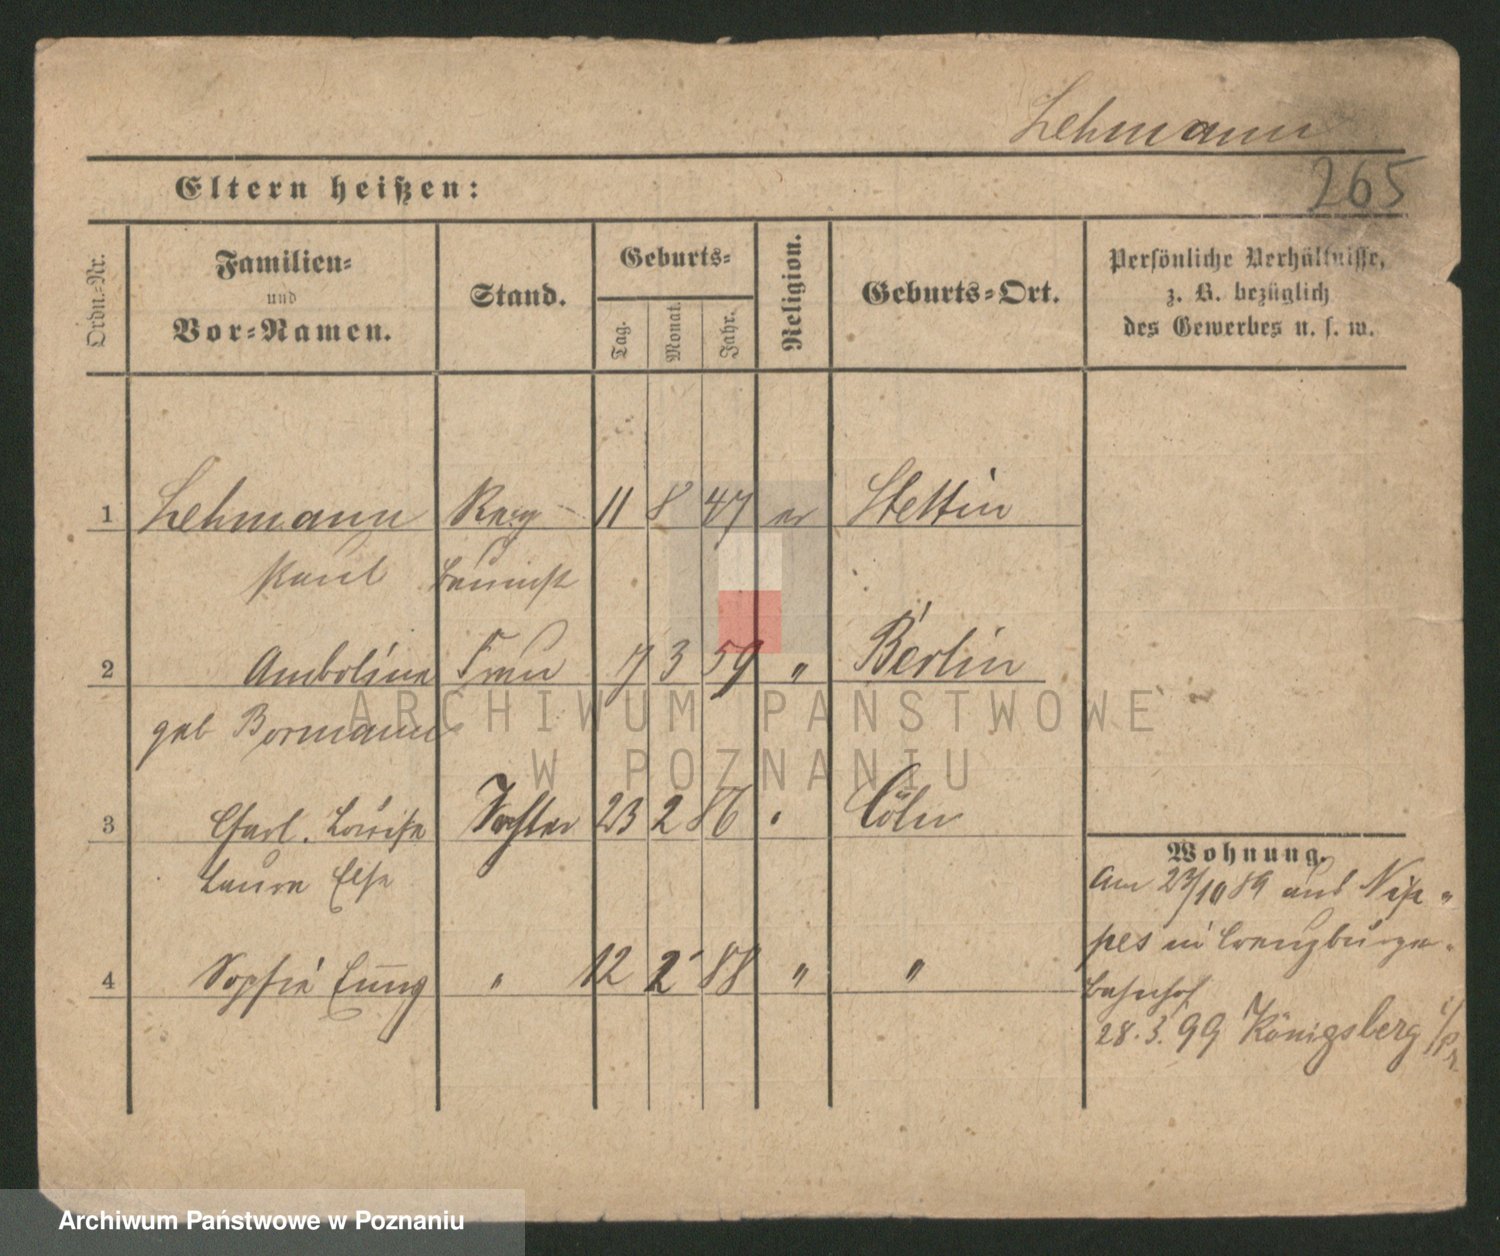 Lehmann
265
Eltern heißen:
Ordn.-Nr.
Familien-
und
Vor-Namen.
Stand.
Geburts-
Tag.
Monat.
Jahr.
Religion.
Geburts-Ort.
Persönliche Verhältnisse,
z. B. bezüglich
des Gewerbes u. s. w.
1 Lehmann Reg 11 8 47 ev Stettin
Paul Baumst
2 Ambolina Frau 17 3 59 " Berlin
geb Bormann
3 Charl. Louise Tochter 23 2 86 " Cöln
Laura Else
4 Sophie " 12 2 88 " "
Wohnung.
Am 23/10 89 aus Nip-
pes in Creuzburger-
bahnhof
28.3.99 Königsberg i/Pr.
ARCHIWUM PAŃSTWOWE
W POZNANIU
Archiwum Państwowe w Poznaniu